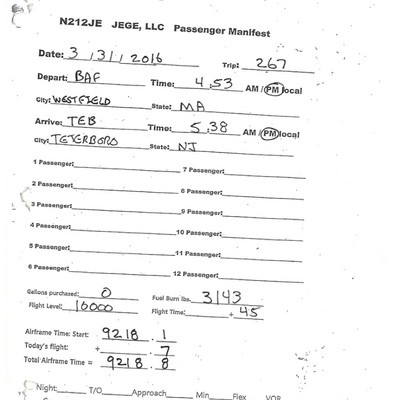 N212JE JEGE, LLC Passenger Manifest
Date: 3 / 31 / 2016 Trip: 267
Depart: BAF Time: 4:53 AM / PM local
City: WESTFIELD State: MA
Arrive: TEB Time: 5:38 AM / PM local
City: TETERBORO State: NJ
1 Passenger: 7 Passenger:
2 Passenger: 8 Passenger:
3 Passenger: 9 Passenger:
4 Passenger: 10 Passenger:
5 Passenger: 11 Passenger:
6 Passenger: 12 Passenger:
Gallons purchased: 0 Fuel Burn lbs. 3143
Flight Level: 16000 Flight Time: + 45
Airframe Time: Start: 9218 . 1
Today's flight: + . 7
Total Airframe Time = 9218 . 8
Night: T/O Approach Min Flex VOR